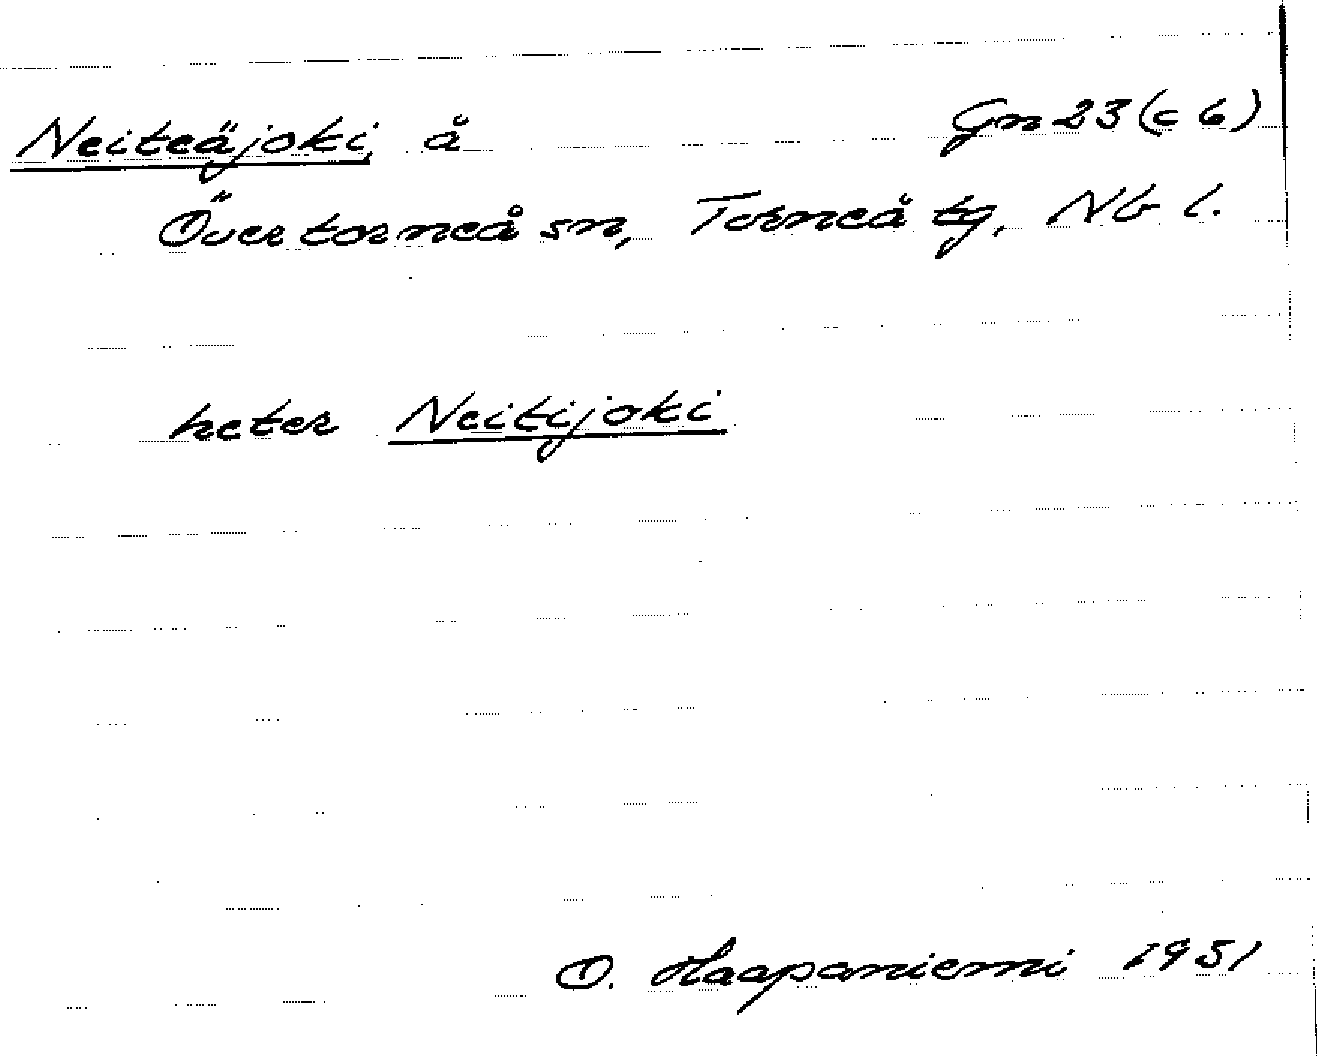 Neiteäjoki, å Gn 23 (c 6)
Övertorneå sn, Torneå tg, Nb l.
heter Neitijoki
O. Haapaniemi 1951